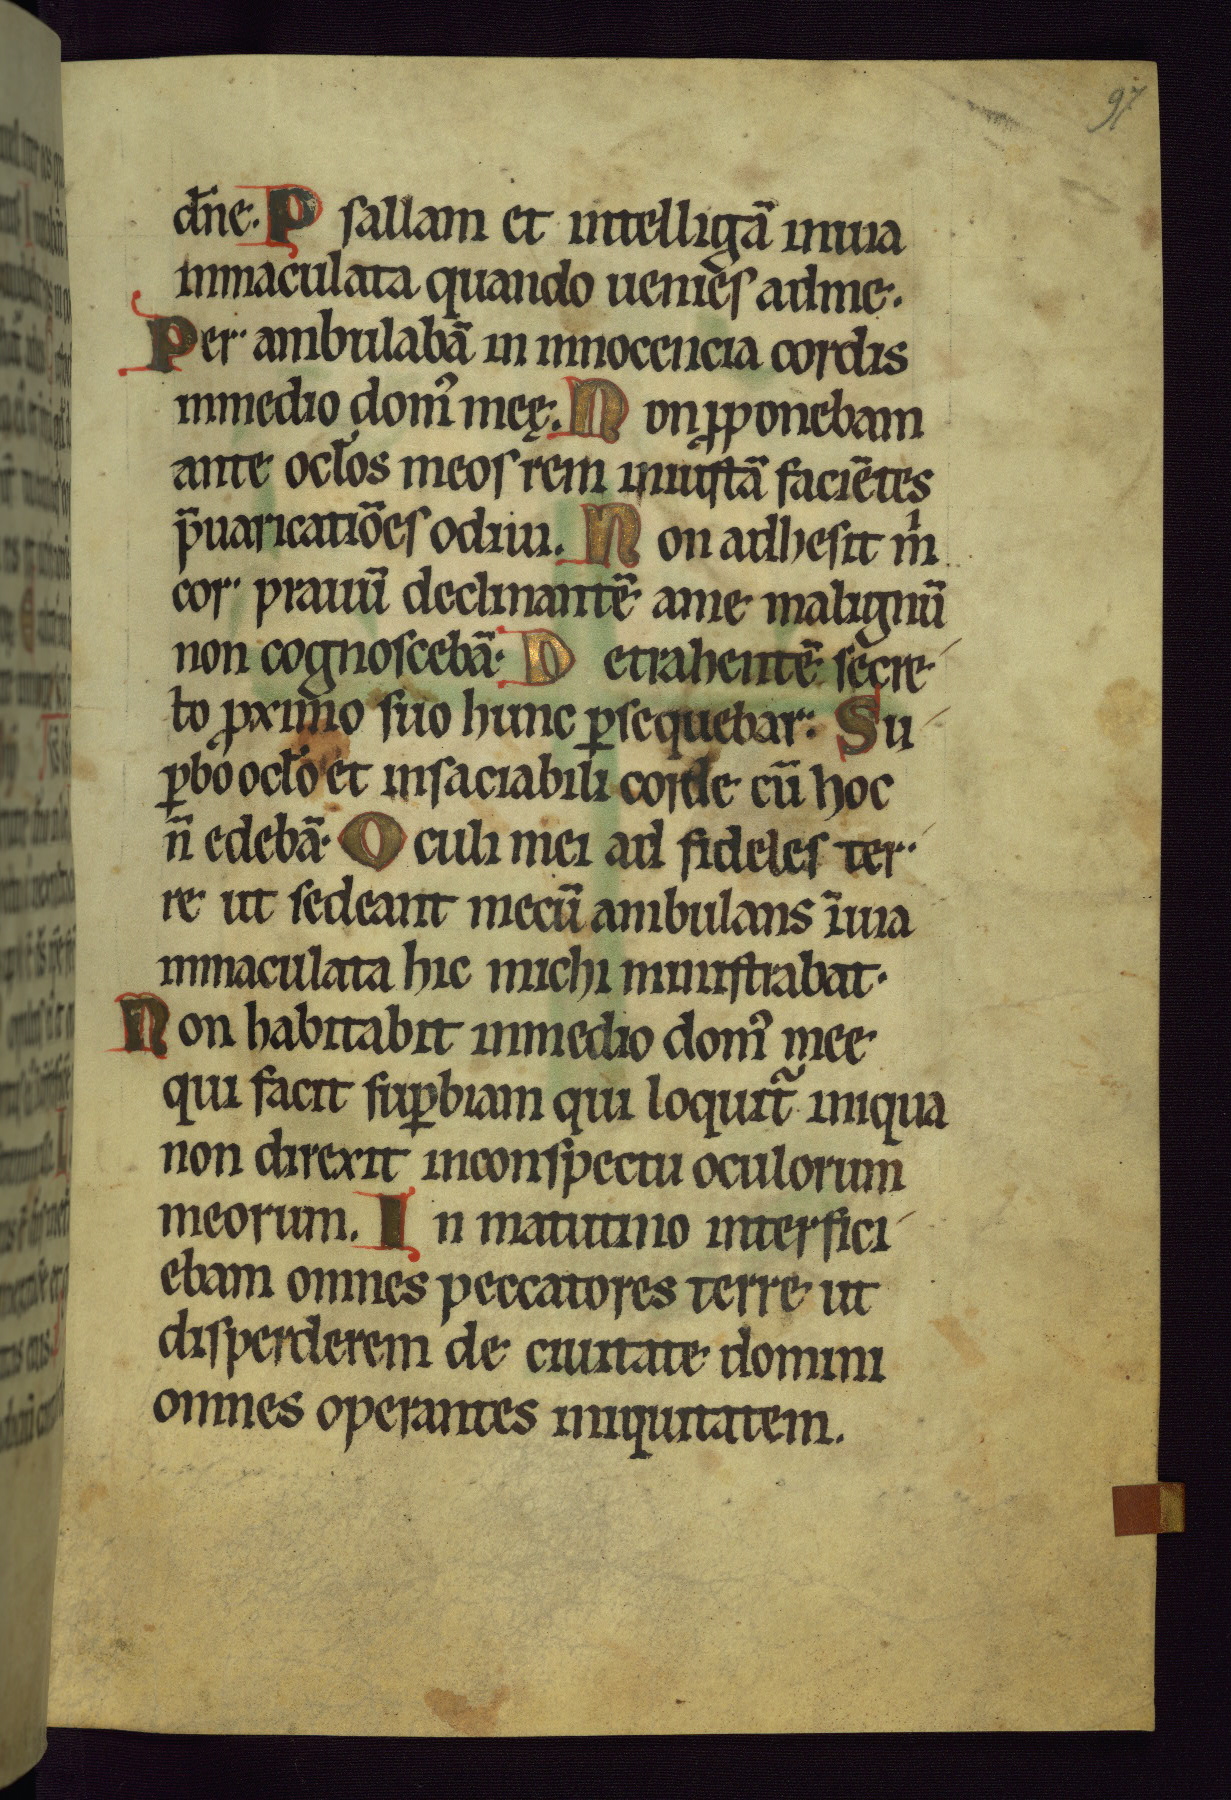 97
dñe. P sallam et intelligā inuia
inmaculata quando ueniēs adme.
Per ambulabā in innocencia cordis
inmedio domꝰ meę. N on ꝓponebam
ante ocl̄os meos rem iniustā faciētes
p̄uaricatiōes odiui. N on adhesit m̄i
cor prauū declinantē ame malignū
non cognoscebā. D etrahentē secre
to ꝓximo suo hunc ꝑsequebar. Su
ꝑbo ocl̄o et insaciabili corde cū hoc
n̄ edebā. O culi mei ad fideles ter
re ut sedeant mecū ambulans īuia
inmaculata hic michi ministrabat.
N on habitabit inmedio domꝰ mee
qui facit suꝑbiam qui loquit᷑ iniqua
non direxit inconspectu oculorum
meorum. I n matutino interfici
ebam omnes peccatores terre ut
disperderem de ciuitate domini
omnes operantes iniquitatem.